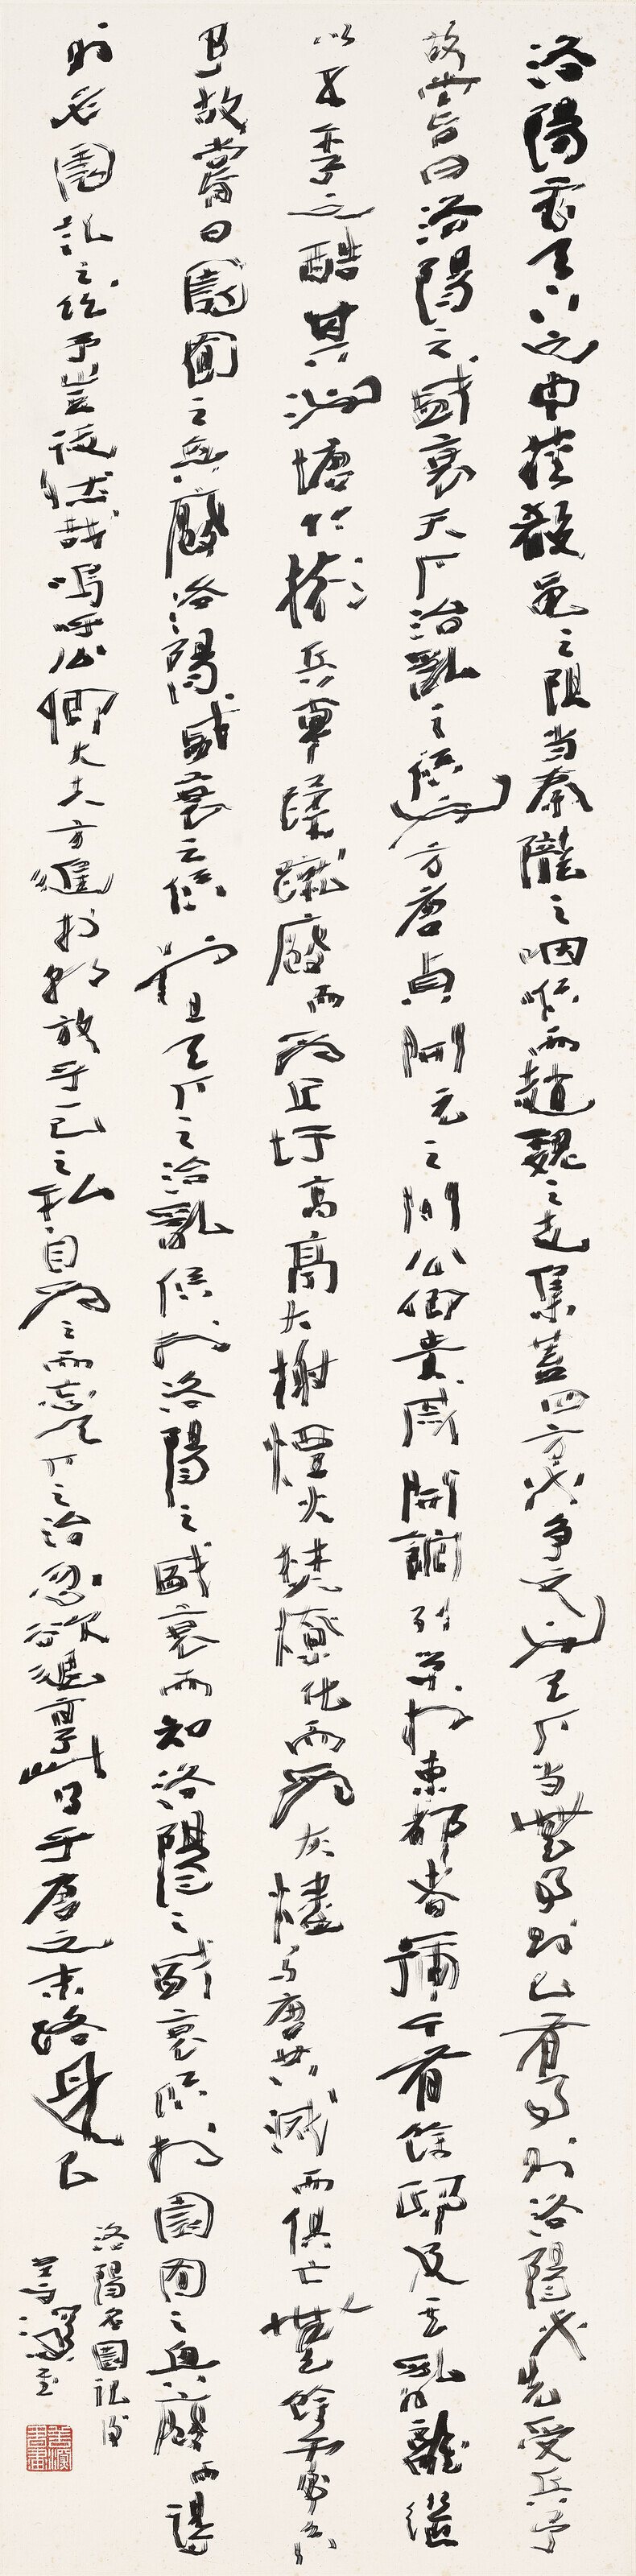 洛陽處天下之中挾殽黽之阻当秦隴之咽喉而趙魏之走集蓋四方必争之地也天下当無事則已有事則洛陽必先受兵予
故嘗曰洛陽之盛衰天下治亂之候也方唐貞開元之間公卿貴戚開館列第於東都者號千有餘邸及其亂離繼
以五季之酷其池塘竹樹兵車蹂蹴廢而為丘墟高亭大榭煙火焚燎化而為灰燼與唐共滅而俱亡無餘處矣
予故嘗曰園囿之興廢洛陽盛衰之候也且天下之治亂候於洛陽之盛衰而知洛陽之盛衰候於園囿之興廢而得
則名園記之作予豈徒然哉嗚呼公卿大夫方進於朝放乎一己之私自為之而忘天下之治忽欲退享此得乎唐之末路是已
洛陽名園記後